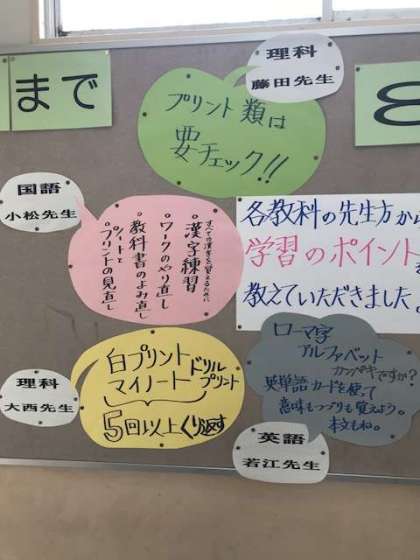 まで
理科
藤田先生
プリント類は
要チェック!!
国語
小松先生
・漢字練習
・ワークのやり直し
・教科書のよみ直し
・ノートと
プリントの見直し
各教科の先生方から
学習のポイント
教えていただきました
理科
大西先生
白プリント
マイノート
ドリル
プリント
5回以上くり返す
ローマ字
アルファベット
カンペキですか?
英単語カードを使って
意味もつづりも覚えよう。
本文もね。
英語
若江先生